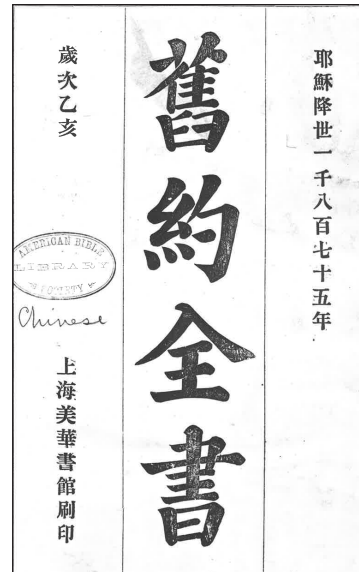 耶穌降世一千八百七十五年
舊約全書
歲次乙亥
AMERICAN BIBLE
LIBRARY
SOCIETY
Chinese
上海美華書館刷印